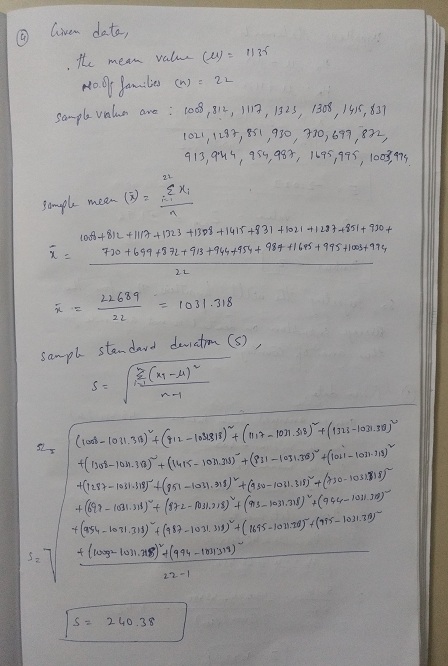 a) Given data,
the mean value (μ) = 1125
No. of families (n) = 22
Sample values are : 1008, 812, 1117, 1323, 1308, 1415, 831
1021, 1287, 851, 930, 730, 699, 872,
913, 944, 954, 987, 1695, 995, 1003, 994
Sample mean (x̄) = 22 Σ i=1 xi / n
x̄ = 1008+812+1117+1323+1308+1415+831+1021+1287+851+930+
730+699+872+913+944+954+987+1695+995+1003+994
22
x̄ = 22689 / 22 = 1031.318
Sample standard deviation (s),
s = √ Σ i=1 (xi-μ)² / n-1
(1008-1031.318)² + (812-1031.318)² + (1117-1031.318)² + (1323-1031.318)²
+(1308-1031.318)² + (1415-1031.318)² + (831-1031.318)² + (1021-1031.318)²
+(1287-1031.318)² + (851-1031.318)² + (930-1031.318)² + (730-1031.318)²
+(699-1031.318)² + (872-1031.318)² + (913-1031.318)² + (944-1031.318)²
+(954-1031.318)² + (987-1031.318)² + (1695-1031.318)² + (995-1031.318)²
s = √ + (1003-1031.318)² + (994-1031.318)²
22-1
s = 240.38